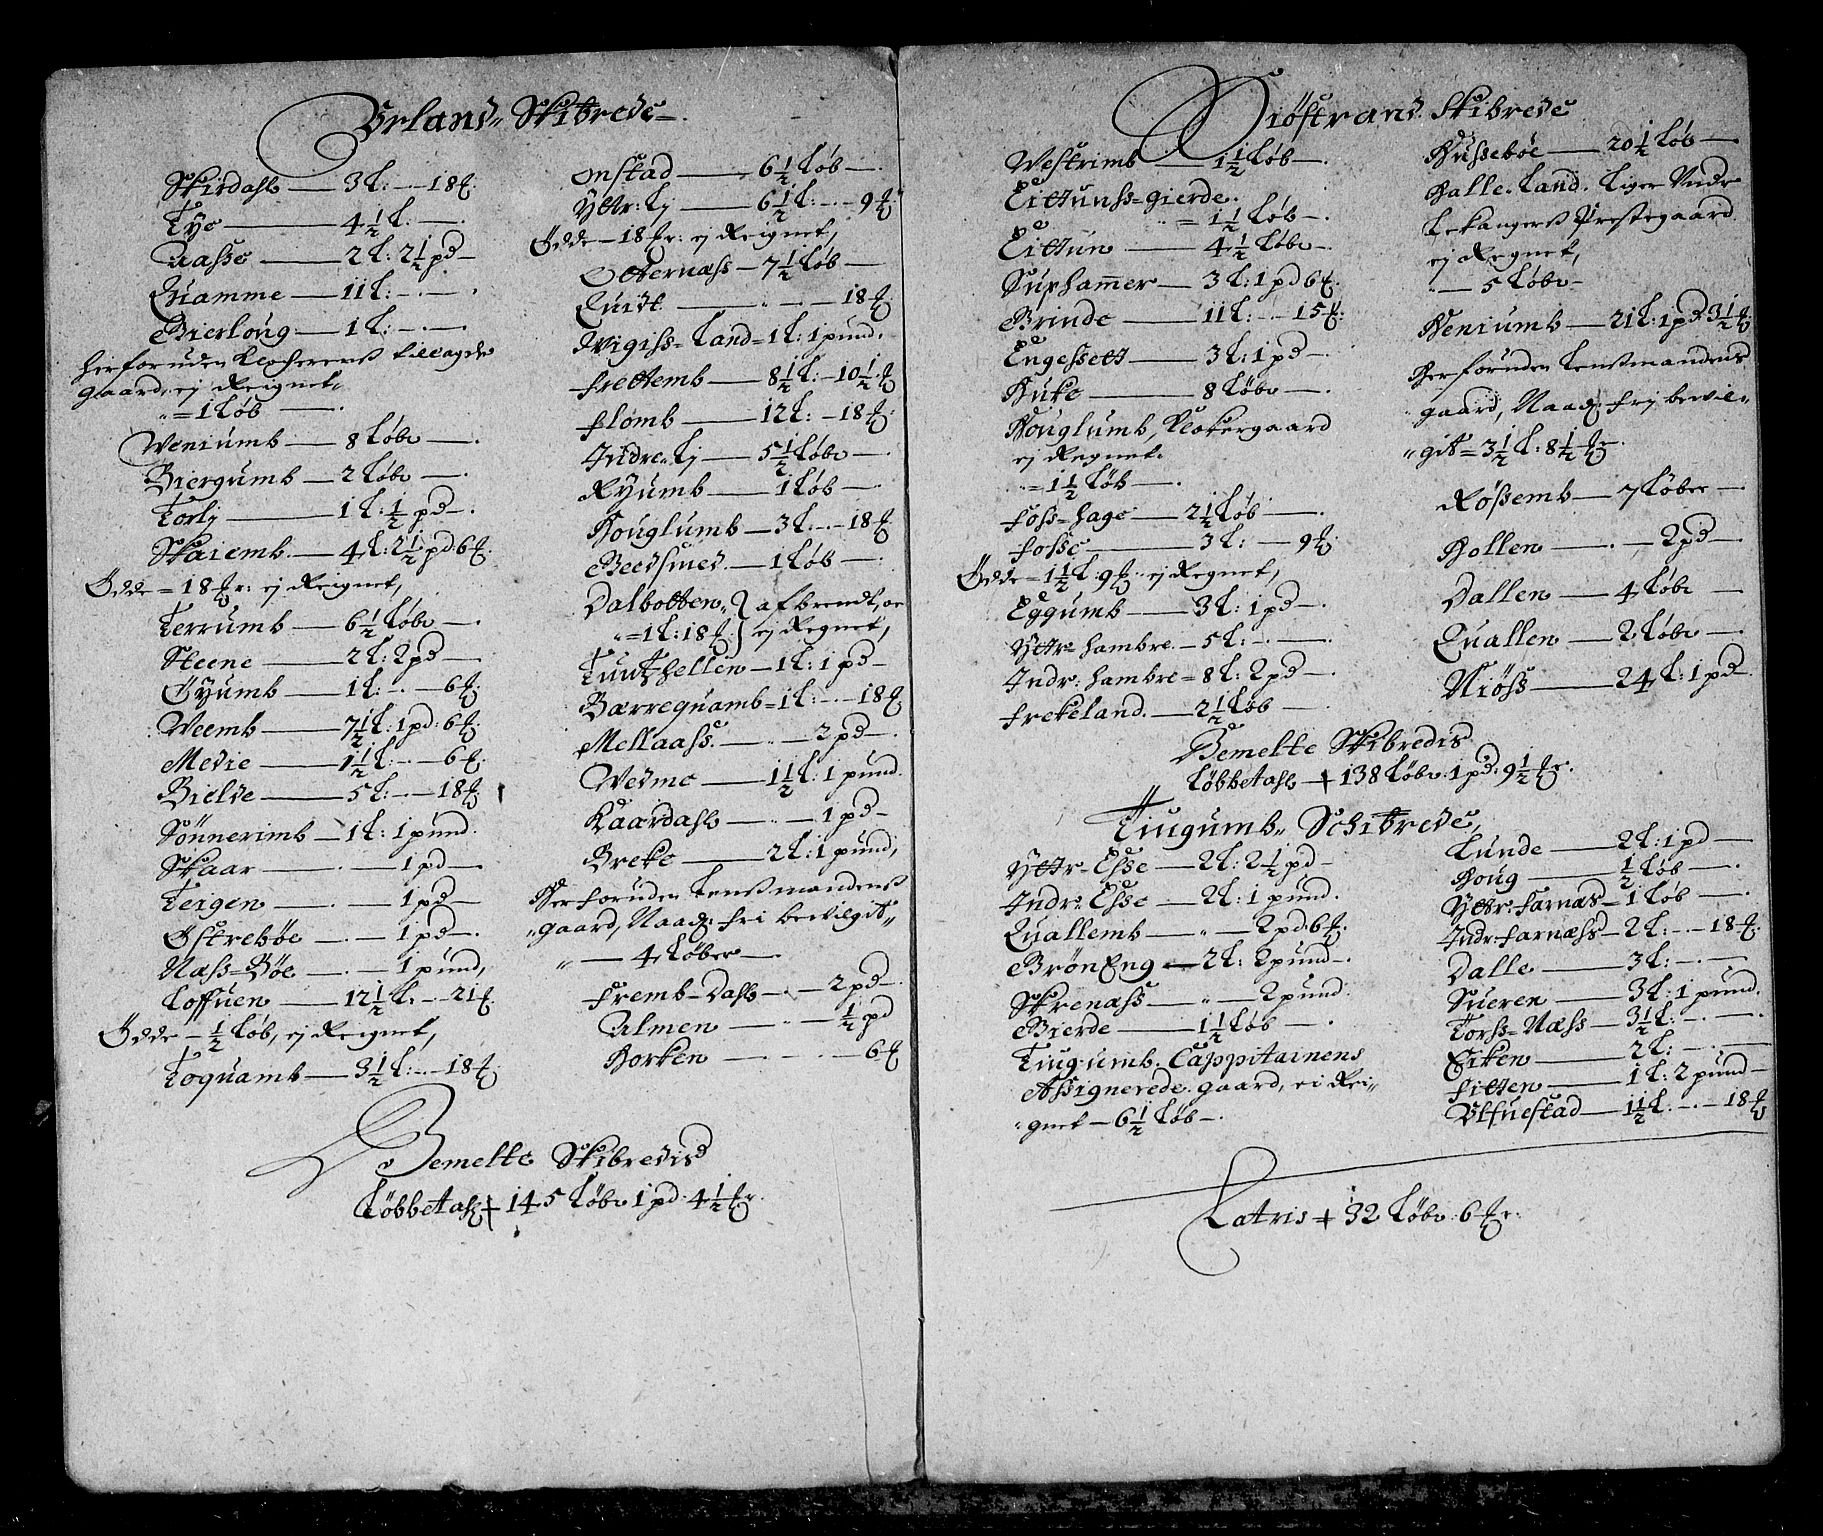 Urland Skibrede
Skirdahl — 3 l: — 18 #:
Tye — 4½ l: —
Aasse — 2 l: 2½ pd —
Giamme — 11 l: —
Bierloug — 1 l: —
herforuden Klocherens tillagde
gaard, ej Reignet,
„ = 1 løb —
Weniumb — 8 løb —
Biergumb — 2 løb —
Torlj — 1 l: ½ pd —
Skaiemb — 4 l: 2½ pd 6 #:
Ødde = 18 #r: ej Reignet,
Terrumb — 6½ løb —
Steene — 2 l: 2 pd —
Øyumb — 1 l: — 6 #:
Weemb — 7½ l: 1 pd: 6 #:
Medie — 1½ l: — 6 #:
Bielde — 5 l: — 18 #:
Sønnerimb — 1 l: 1 pund.
Skaar — — 1 pd —
Teigen — — 1 pd —
Østrebøe — — 1 pd —
Næss=Bøe — — 1 pund,
Loffuen — 12½ l: — 21 #:
Ødde — ½ løb, ej Reignet,
Loquamb — 3½ l: — 18 #:
Onstad — 6½ løb —
Yttr: lj — 6½ l: — 9 #:
Ødde — 18 #r: ej Reignet,
Otternæss — 7½ løb —
Quist — „ — 18 #:
Wigiss=land = 1 l: 1 pund.
Frettemb — 8½ l: — 10½ #
Flomb — 12 l: — 18 #:
Indre lj — 5½ løb —
Ryumb — 1 løb —
Houglumb — 3 l: — 18 #
Beedsmed — 1 løb —
Dalbotten, } afbrendt, oc
„ = 1 l: 18 # } ej Regnet,
Tuntzhellen — 1 l: 1 pd —
Bærrequamb = 1 l: — 18 #
Mellaass — „ — 2 pd —
Wedme — 1½ l: 1 pund.
Kaardahl — „ — 1 pd —
Breke — 2 l: 1 pund,
Herforuden Lensmandens
gaard, Naad: fri bewilgit,
„ — 4 løber —
Fremb=Dahl — 2 pd —
Almen — „ — ½ pd
Horken — 6 #
Bemelte Skibredis
Løbbetahl + 145 løb 1 pd 4½ #r.
Siøstrand Skibrede
Westrimb — 1½ løb —
Eittunss=gierde.
„ = 1½ løb —
Eittun — 4½ løb —
Suphammer — 3 l: 1 pd 6 #:
Grinde — 11 l: — 15 #:
Engessett — 3 l: 1 pd —
Huke — 8 løb —
Houglumb, Klokergaard
ej Regnet.
„ = 1½ løb —
Foss=hage — 2½ løb —
Fosse — 3 l: — 9 #:
Ødde = 1½ l: 9 #: ej Regnet,
Eggumb — 3 l: 1 pd —
Yttr=hambre — 5 l: —
Indr: hambre = 8 l: 2 pd —
Frekeland — 2½ løb —
Hussebøe — 20½ løb —
Halle=land. liger Under
Lekangers Prestegaard
ej Regnet,
„ — 5 løb —
Heniumb — 21 l: 1 pd 3½ #:
Herforuden Lensmandens
gaard, Naad: frj bewil=
„git = 3½ l: 8½ #r.
Røssemb — 7 løber —
Hollen — — 2 pd —
Dallen — 4 løb —
Quallen — 2 løb —
Niøss — 24 l: 1 pd —
Bemelte Skibredis
Løbbetahl + 138 løb 1 pd: 9½ #r.
Tiugumb Schibrede,
Yttr=Esse — 2 l: 2½ pd —
Indr: Esse — 2 l: 1 pund.
Quallemb — „ — 2 pd: 6 #:
BrønEng — 2 l: 2 pund —
Skrenæss — „ — 2 pund.
Gierde — 1½ løb —
Tiugumb. Cappitainens
Assignerede gaard, ei Rei=
„gnet — 6½ løb —
Lunde — 2 l: 1 pd —
Houg — ½ løb —
Yttr: Farnæs — 1 løb —
Indr: Farnæss — 2 l: — 18 #:
Dalle — 3 l: —
Sueren — 3 l: 1 pund.
Torss=Næss — 3½ l: —
Eiken — 2 l: —
Fitten — 1 l: 2 pund —
Ulfuestad — 1½ l: — 18 #
Latris + 32 løb: 6 #r: